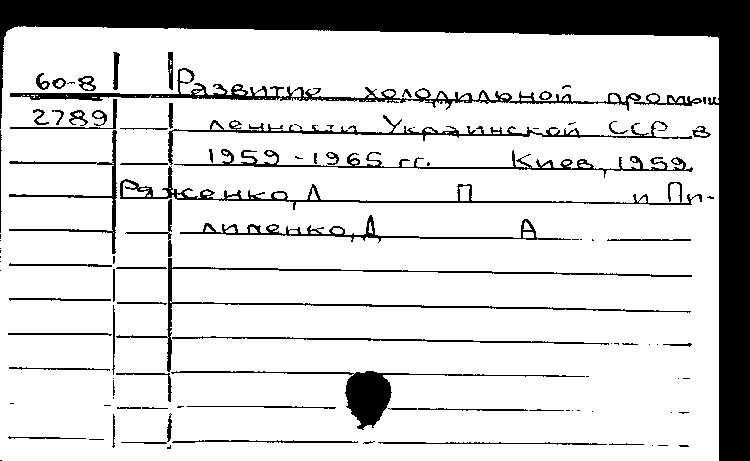 60-8 Развитие холодильной промыш
2789 ленности Украинской ССР в
1959-1965 гг. Киев, 1959.
Ряженко, Л П и Пи-
липенко, Д А